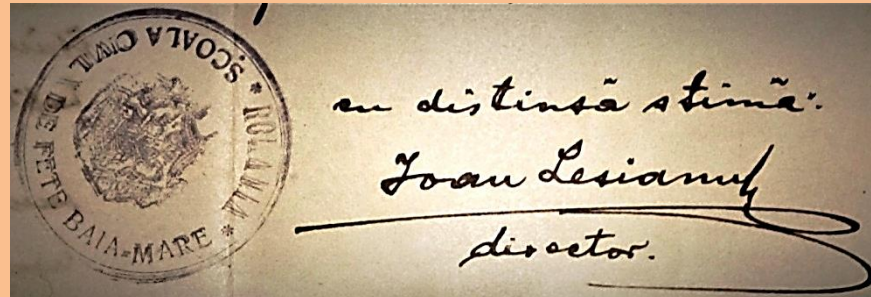 * ROMANIA *
ȘCOALA CIVILĂ DE FETE BAIA-MARE
cu distinsă stimă.
Ioan Lesianu
director.